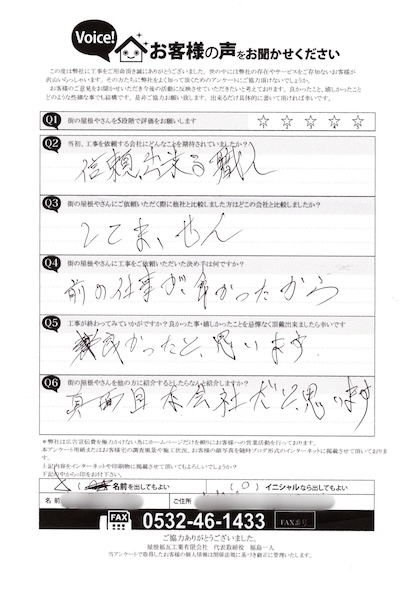 Voice!
お客様の声をお聞かせください
この度は弊社に工事をご用命頂き誠にありがとうございました。世の中には弊社の存在やサービスをご存知ないお客様が
沢山いらっしゃいます。その方たちに弊社をよく知って頂くためのアンケートにご協力頂けないでしょうか。
お客様のご意見をお聞かせいただき今後の活動に反映させていただきたいと考えております。良かったこと、嬉しかったこと
どのような些細な事でも結構です。是非ご協力お願い致します。出来るだけ具体的に書いて頂ければ幸いです。
Q1 街の屋根やさんを5段階で評価をお願いします ☆ ☆ ☆ ☆ ☆
Q2 当初、工事を依頼する会社にどんなことを期待されていましたか?
信頼出来る職人
Q3 街の屋根やさんにご依頼いただく際に他社と比較しました方はどこの会社と比較しましたか?
してません
Q4 街の屋根やさんに工事をご依頼いただいた決め手は何ですか?
前の仕事が良かったから
Q5 工事が終わってみていかがですか?良かった事・嬉しかったことを忌憚なく頂戴出来ましたら幸いです
良かったと、思います。
Q6 街の屋根やさんを他の方に紹介するとしたらなんと紹介しますか?
真面目な会社だと思います
*弊社は広告宣伝費を極力かけない為にホームページだけを頼りにお客様への営業活動を行っております。
本アンケート用紙またはお客様宅の調査風景や施工状況、お客様の顔写真を随時ブログ形式のインターネットに掲載させて頂いております。
上記内容をインターネットや印刷物に掲載させて頂いてもよろしいでしょうか?
下記の中から○印をお付け下さい。
( ) 名前を出してもよい ( ○ ) イニシャルなら出してもよい
名前 ご住所
FAX 0532-46-1433 FAX番号
ご協力ありがとうございました。
屋根福瓦工業有限会社 代表取締役 福島一人
当アンケートで取得したお客様の個人情報は関係法規に基づき厳正に管理いたします。